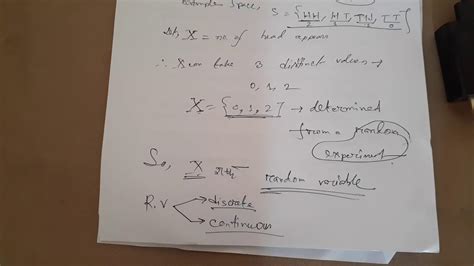 Sample Space, S = {HH, HT, TH, TT}
2 1 1 0
X = no of head appears
∴ X can take 3 distinct values →
0, 1, 2
X = {0, 1, 2} → determined
from a random
experiment
So, X random variable
R.V → discrete
→ continuous